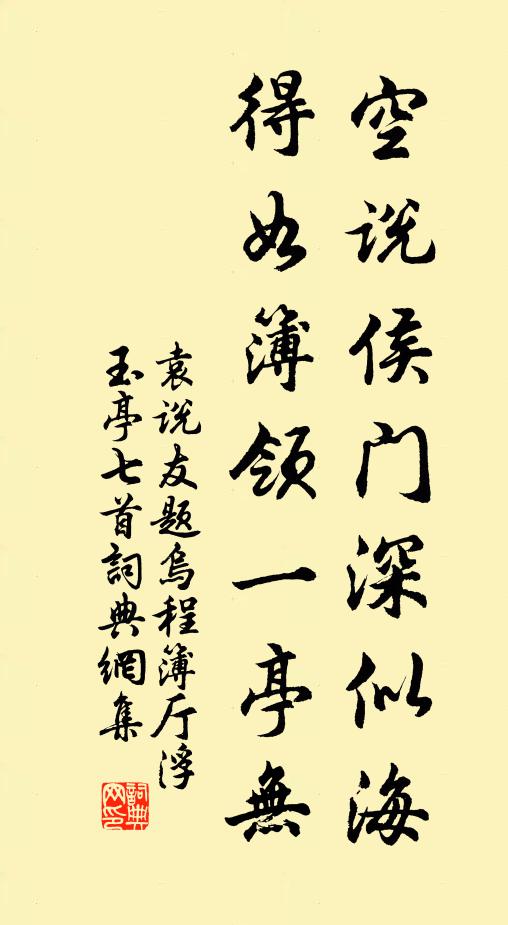 空说侯门深似海
得如簿领一亭無
袁说友题烏程簿厅浮
玉亭七首詞典網集
詞典网印